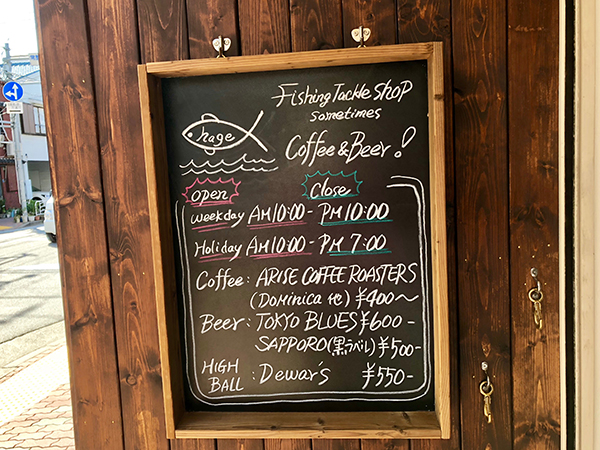 Fishing Tackle SHOP
sometimes
hage
Coffee & Beer!
open
Close
weekday AM10:00 - PM 10:00
Holiday AM10:00 - PM 7:00
Coffee: ARISE COFFEE ROASTERS
(Dominica 他) ¥400〜
Beer: TOKYO BLUES ¥600-
SAPPORO(黒ラベル) ¥500-
HIGH BALL : Dewars ¥550-